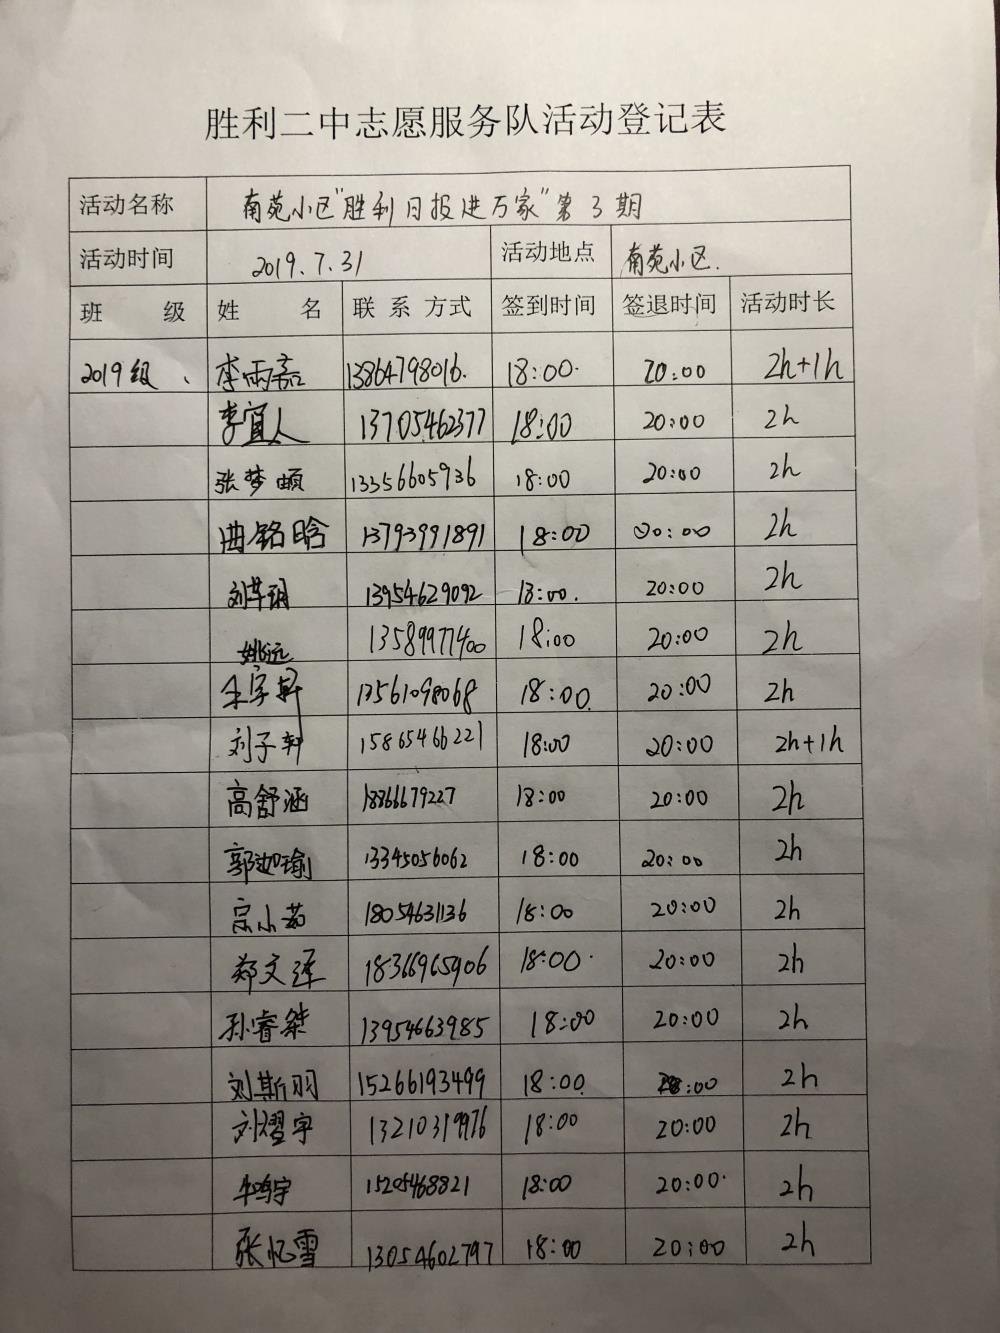 胜利二中志愿服务队活动登记表
活动名称 南苑小区"胜利日报进万家"第3期
活动时间 2019.7.31 活动地点 南苑小区.
班 级 姓 名 联 系 方式 签到时间 签退时间 活动时长
2019级、 李雨嘉 13864798016. 18:00. 20:00 2h+1h
李宜人 13705462377 18:00 20:00 2h
张梦頔 13356605936 18:00 20:00 2h
曲铭晗 13793991891 18:00 20:00 2h
刘芊玥 13954629092 18:00. 20:00 2h
姚远 13589977400 18:00 20:00 2h
宇轩 13561098068 18:00. 20:00 2h
刘子轩 15865466221 18:00 20:00 2h+1h
高舒涵 18866679227 18:00 20:00 2h
郭如瑜 13345056062 18:00 20:00 2h
宗小茹 18054631136 18:00 20:00 2h
郑文泽 18366965906 18:00. 20:00 2h
孙睿桀 13954663985 18:00 20:00 2h
刘斯羽 15266193499 18:00 20:00 2h
刘熠宇 13210319976 18:00 20:00 2h
牛鸣宇 15205468821 18:00 20:00. 2h
张忆雪 13054602797 18:00 20:00 2h